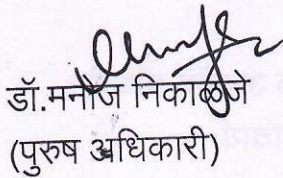 डॉ.मनोज निकाळजे
(पुरुष अधिकारी)